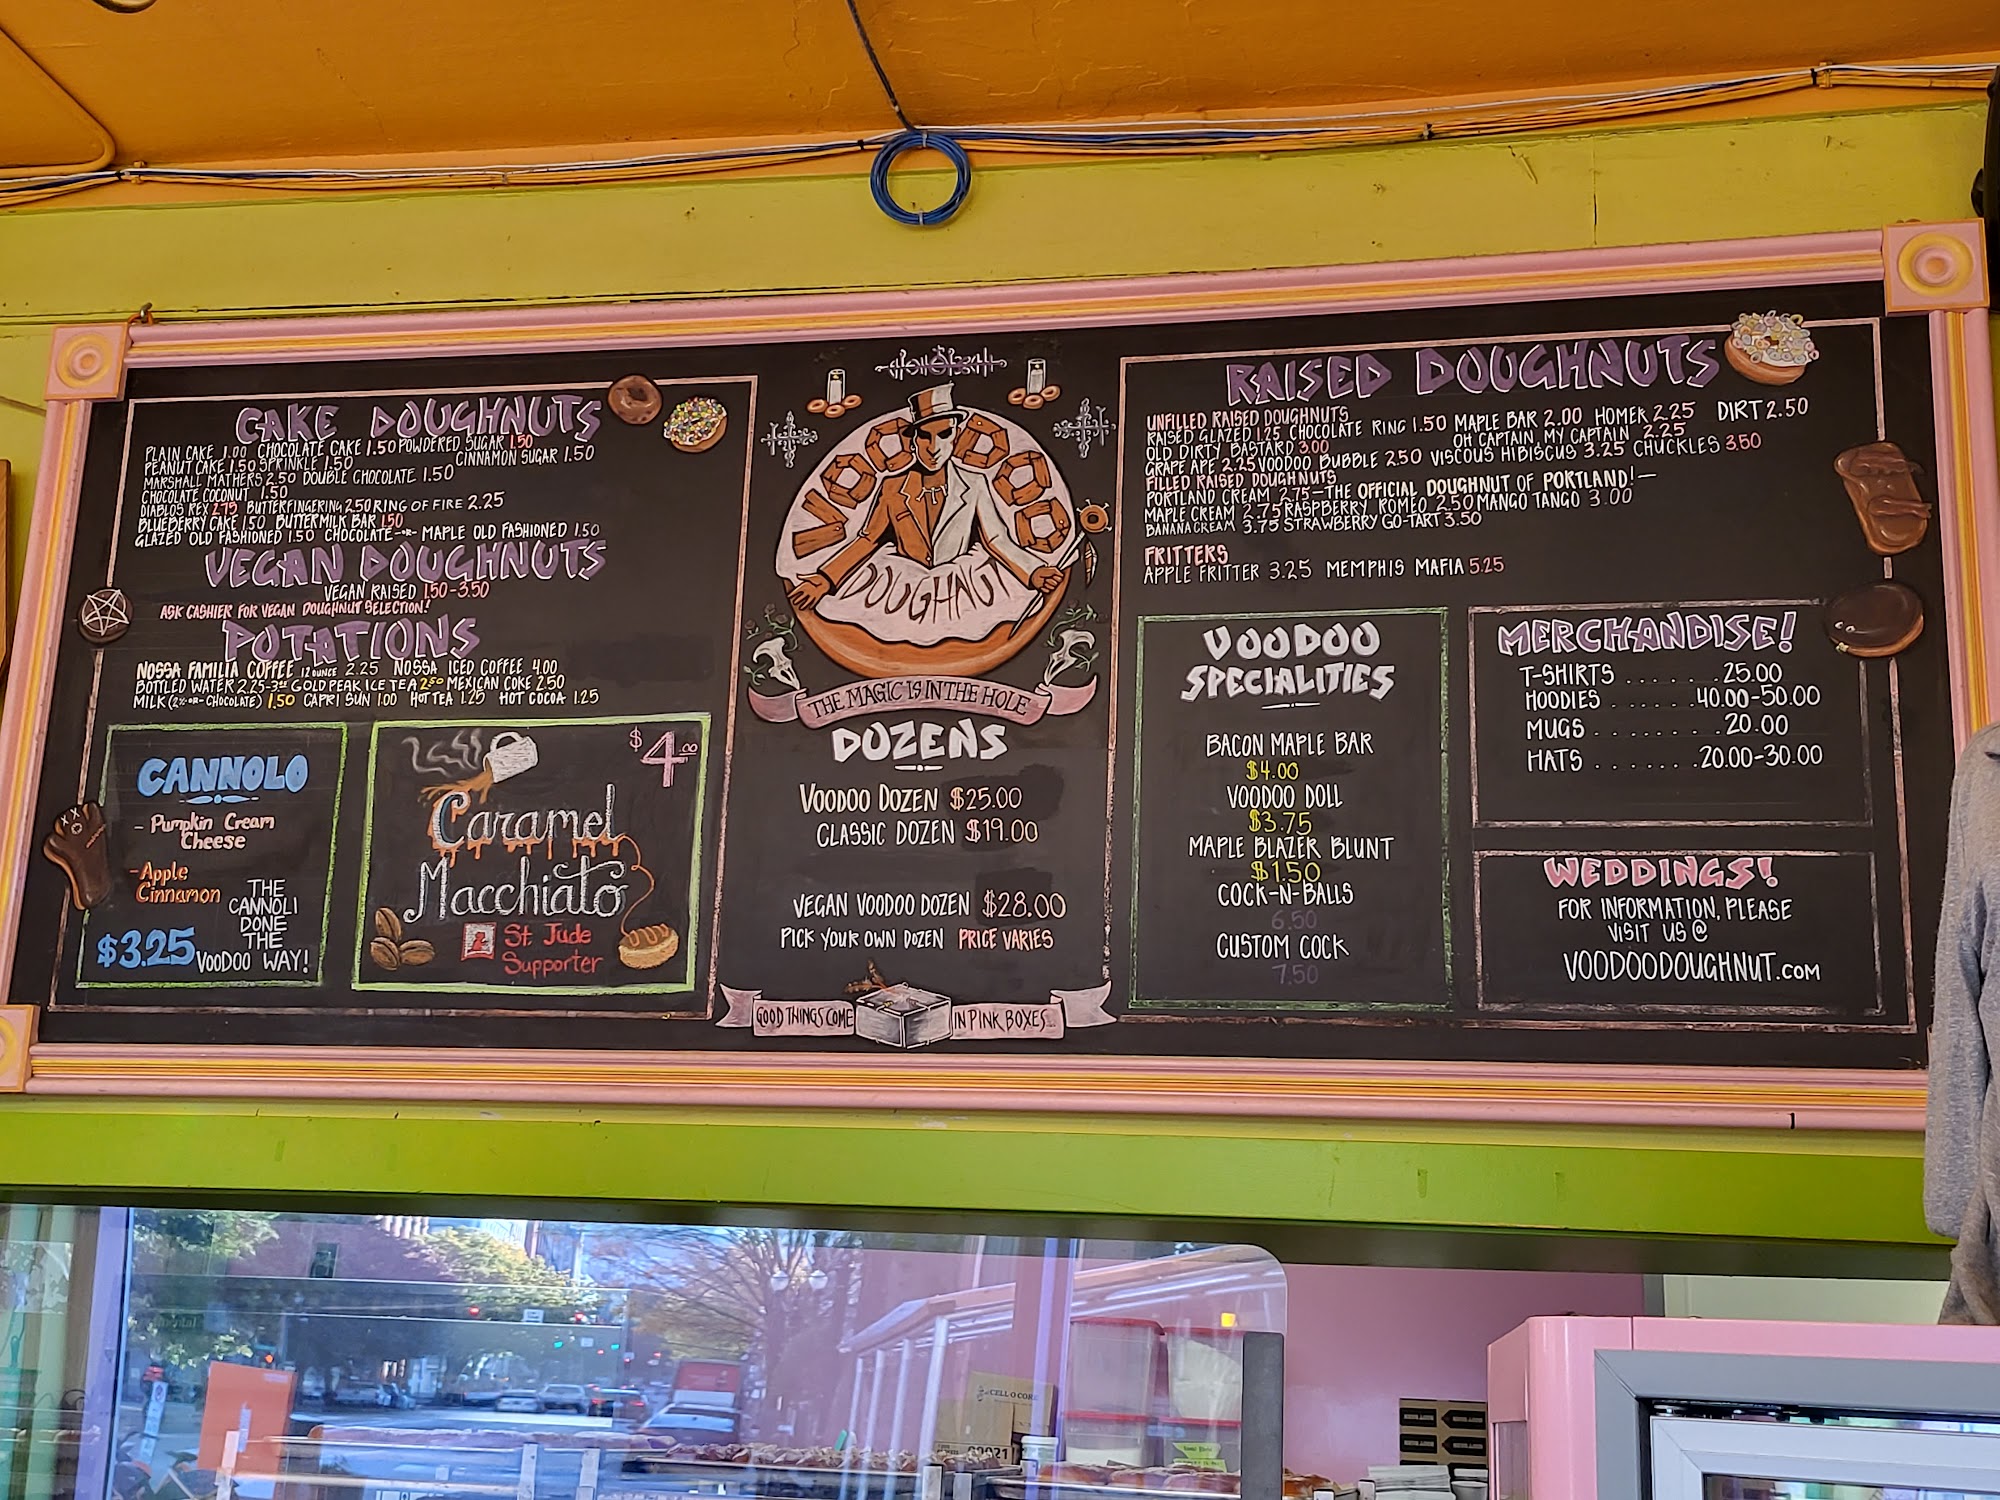 CAKE DOUGHNUTS
PLAIN CAKE 1.00 CHOCOLATE CAKE 1.50 POWDERED SUGAR 1.50
PEANUT CAKE 1.50 SPRINKLE 1.50 CINNAMON SUGAR 1.50
MARSHALL MATHERS 2.50 DOUBLE CHOCOLATE 1.50
CHOCOLATE COCONUT 1.50
DIABLOS REX 2.75 BUTTERFINGERING 2.50 RING OF FIRE 2.25
BLUEBERRY CAKE 1.50 BUTTERMILK BAR 1.50
GLAZED OLD FASHIONED 1.50 CHOCOLATE -OR- MAPLE OLD FASHIONED 1.50
VEGAN DOUGHNUTS
VEGAN RAISED 1.50-3.50
ASK CASHIER FOR VEGAN DOUGHNUT SELECTION!
POTATIONS
NOSSA FAMILIA COFFEE 12 OUNCE 2.25 NOSSA ICED COFFEE 4.00
BOTTLED WATER 2.25-3.25 GOLD PEAK ICE TEA 2.50 MEXICAN COKE 2.50
MILK (2% -OR- CHOCOLATE) 1.50 CAPRI SUN 1.00 HOT TEA 1.25 HOT COCOA 1.25
CANNOLO
- Pumpkin Cream
Cheese
- Apple
Cinnamon
$3.25
THE
CANNOLI
DONE
THE
VOODOO WAY!
$4.00
Caramel
Macchiato
St. Jude
Supporter
VOODOO
DOUGHNUT
THE MAGIC IS IN THE HOLE
DOZENS
VOODOO DOZEN $25.00
CLASSIC DOZEN $19.00
VEGAN VOODOO DOZEN $28.00
PICK YOUR OWN DOZEN PRICE VARIES
GOOD THINGS COME IN PINK BOXES...
RAISED DOUGHNUTS
UNFILLED RAISED DOUGHNUTS
RAISED GLAZED 1.25 CHOCOLATE RING 1.50 MAPLE BAR 2.00 HOMER 2.25 DIRT 2.50
OLD DIRTY BASTARD 3.00 OH CAPTAIN, MY CAPTAIN 2.25
GRAPE APE 2.25 VOODOO BUBBLE 2.50 VISCOUS HIBISCUS 3.25 CHUCKLES 3.50
FILLED RAISED DOUGHNUTS
PORTLAND CREAM 2.75-THE OFFICIAL DOUGHNUT OF PORTLAND!-
MAPLE CREAM 2.75 RASPBERRY ROMEO 2.50 MANGO TANGO 3.00
BANANA CREAM 3.75 STRAWBERRY GO-TART 3.50
FRITTERS
APPLE FRITTER 3.25 MEMPHIS MAFIA 5.25
VOODOO
SPECIALITIES
BACON MAPLE BAR
$4.00
VOODOO DOLL
$3.75
MAPLE BLAZER BLUNT
$1.50
COCK-N-BALLS
6.50
CUSTOM COCK
7.50
MERCHANDISE!
T-SHIRTS . . . . . . . 25.00
HOODIES . . . . . . 40.00-50.00
MUGS . . . . . . . . 20.00
HATS . . . . . . . 20.00-30.00
WEDDINGS!
FOR INFORMATION, PLEASE
VISIT US @
VOODOODOUGHNUT.COM
CELL-O-CORE